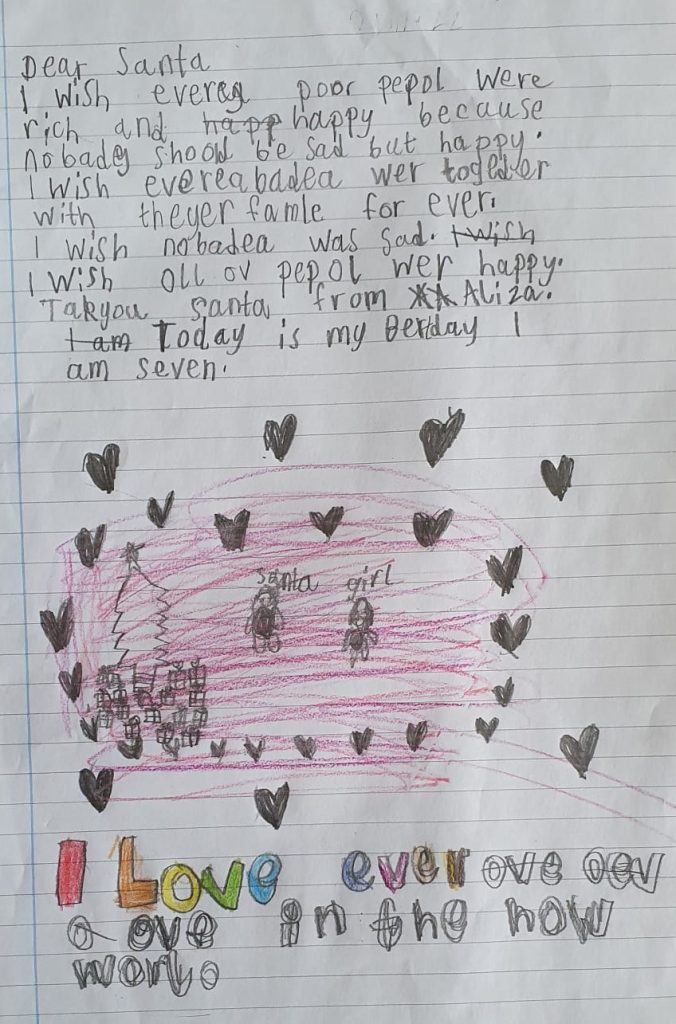 Dear Santa
I wish evereg poor pepol were
rich and happ happy because
nobadey shoold be sad but happy.
I wish evereabadea wer together
with theyer famle for ever.
I wish nobadea was sad. I wish
I wish oll ov pepol wer happy.
Takyou santa from Aliza.
I am Today is my Berday I
am seven.
santa girl
I Love ever ove
a ove in the how
worl.